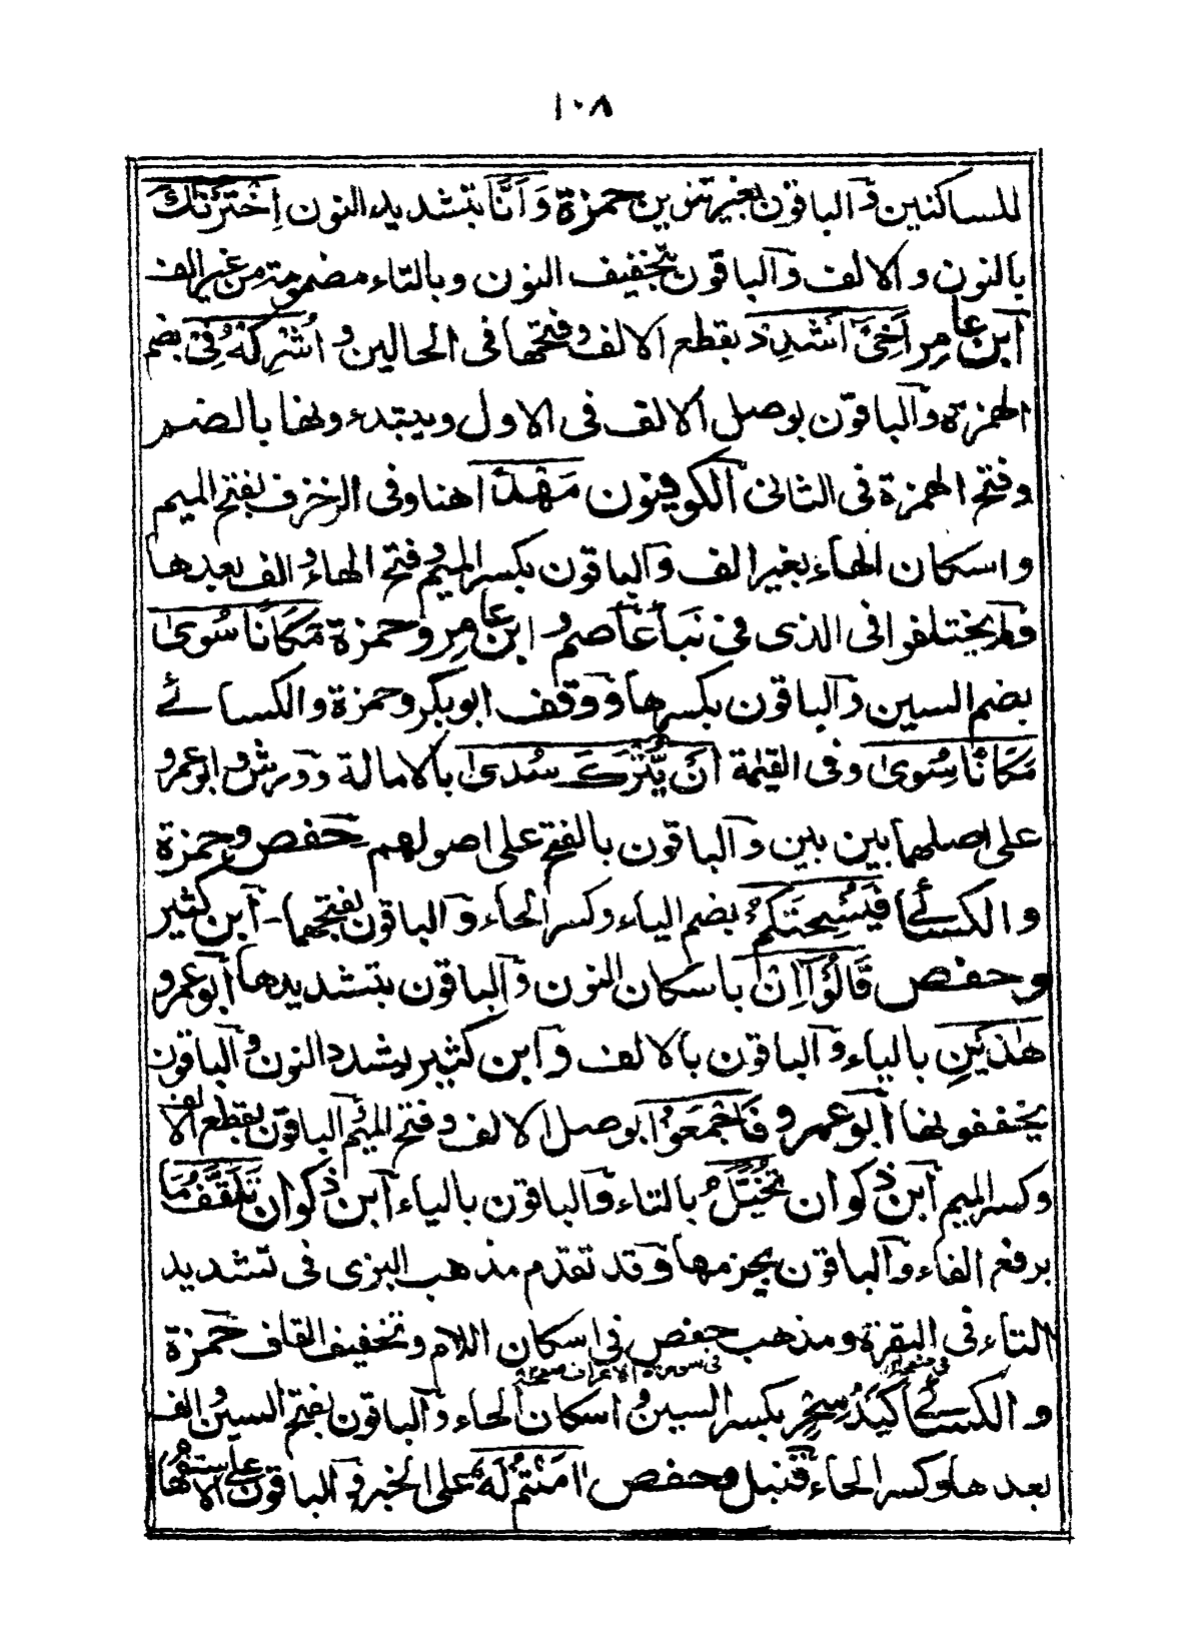 ١٠٨
للساكنين والباقون بغير تنوين حمزة وَأَنَّا بتشديد النون اِخْتَرْنٰكَ
بالنون والالف والباقون بتخفيف النون وبالتاء مضمومة من غير الف
ابن عامر اَخِىْ اَشْدِدْ بقطع الالف وفتحها فى الحالين و اُشْرِكْهُ فِىْ بضم
الهمزة والباقون بوصل الالف فى الاول ويبتدءونها بالضم
وفتح الهمزة فى الثانى الكوفيون مَهْدًا هنا وفى الزخرف بفتح الميم
واسكان الهاء بغير الف والباقون بكسر الميم وفتح الهاء والف بعدها
ولم يختلفوا فى الذى فى نبأ عاصم وابن عامر وحمزة مَكَانًا سُوىً
بضم السين والباقون بكسرها ووقف ابوبكر وحمزة والكسائے
مَكَانًا سُوىً وفى القيٰمة اَنْ يُّتْرَكَ سُدىً بالامالة وورش وابوعمرو
على اصلهما بين بين والباقون بالفتح على اصولهم حفص وحمزة
والكسائے فَيُسْحِتَكُمْ بضم الياء وكسر الحاء والباقون بفتحهما - ابن كثير
وحفص قَالُوْٓا اِنْ باسكان النون والباقون بتشديدها ابوعمرو
هٰذَيْنِ بالياء والباقون بالالف وابن كثير يشدد النون والباقون
يخففونها ابوعمرو فَاجْمَعُوْا بوصل الالف وفتح الميم الباقون بقطع الالف
وكسر الميم ابن ذكوان تُخَيَّلُ بالتاء والباقون بالياء ابن ذكوان تَلَقَّفُ مَا
برفع الفاء والباقون بجزمها وقد تقدم مذهب البزى فى تشديد
التاء فى البقرة ومذهب حفص فى اسكان اللام وتخفيف القاف حمزة
فى سورة الاعراف
والكسائے كَيْدُ سِحْرٍ بكسر السين واسكان الحاء والباقون بفتح السين والف
بعدها وكسر الحاء قنبل وحفص اٰمَنْتُمْ لَهٗ على الخبر والباقون على الاستفهام